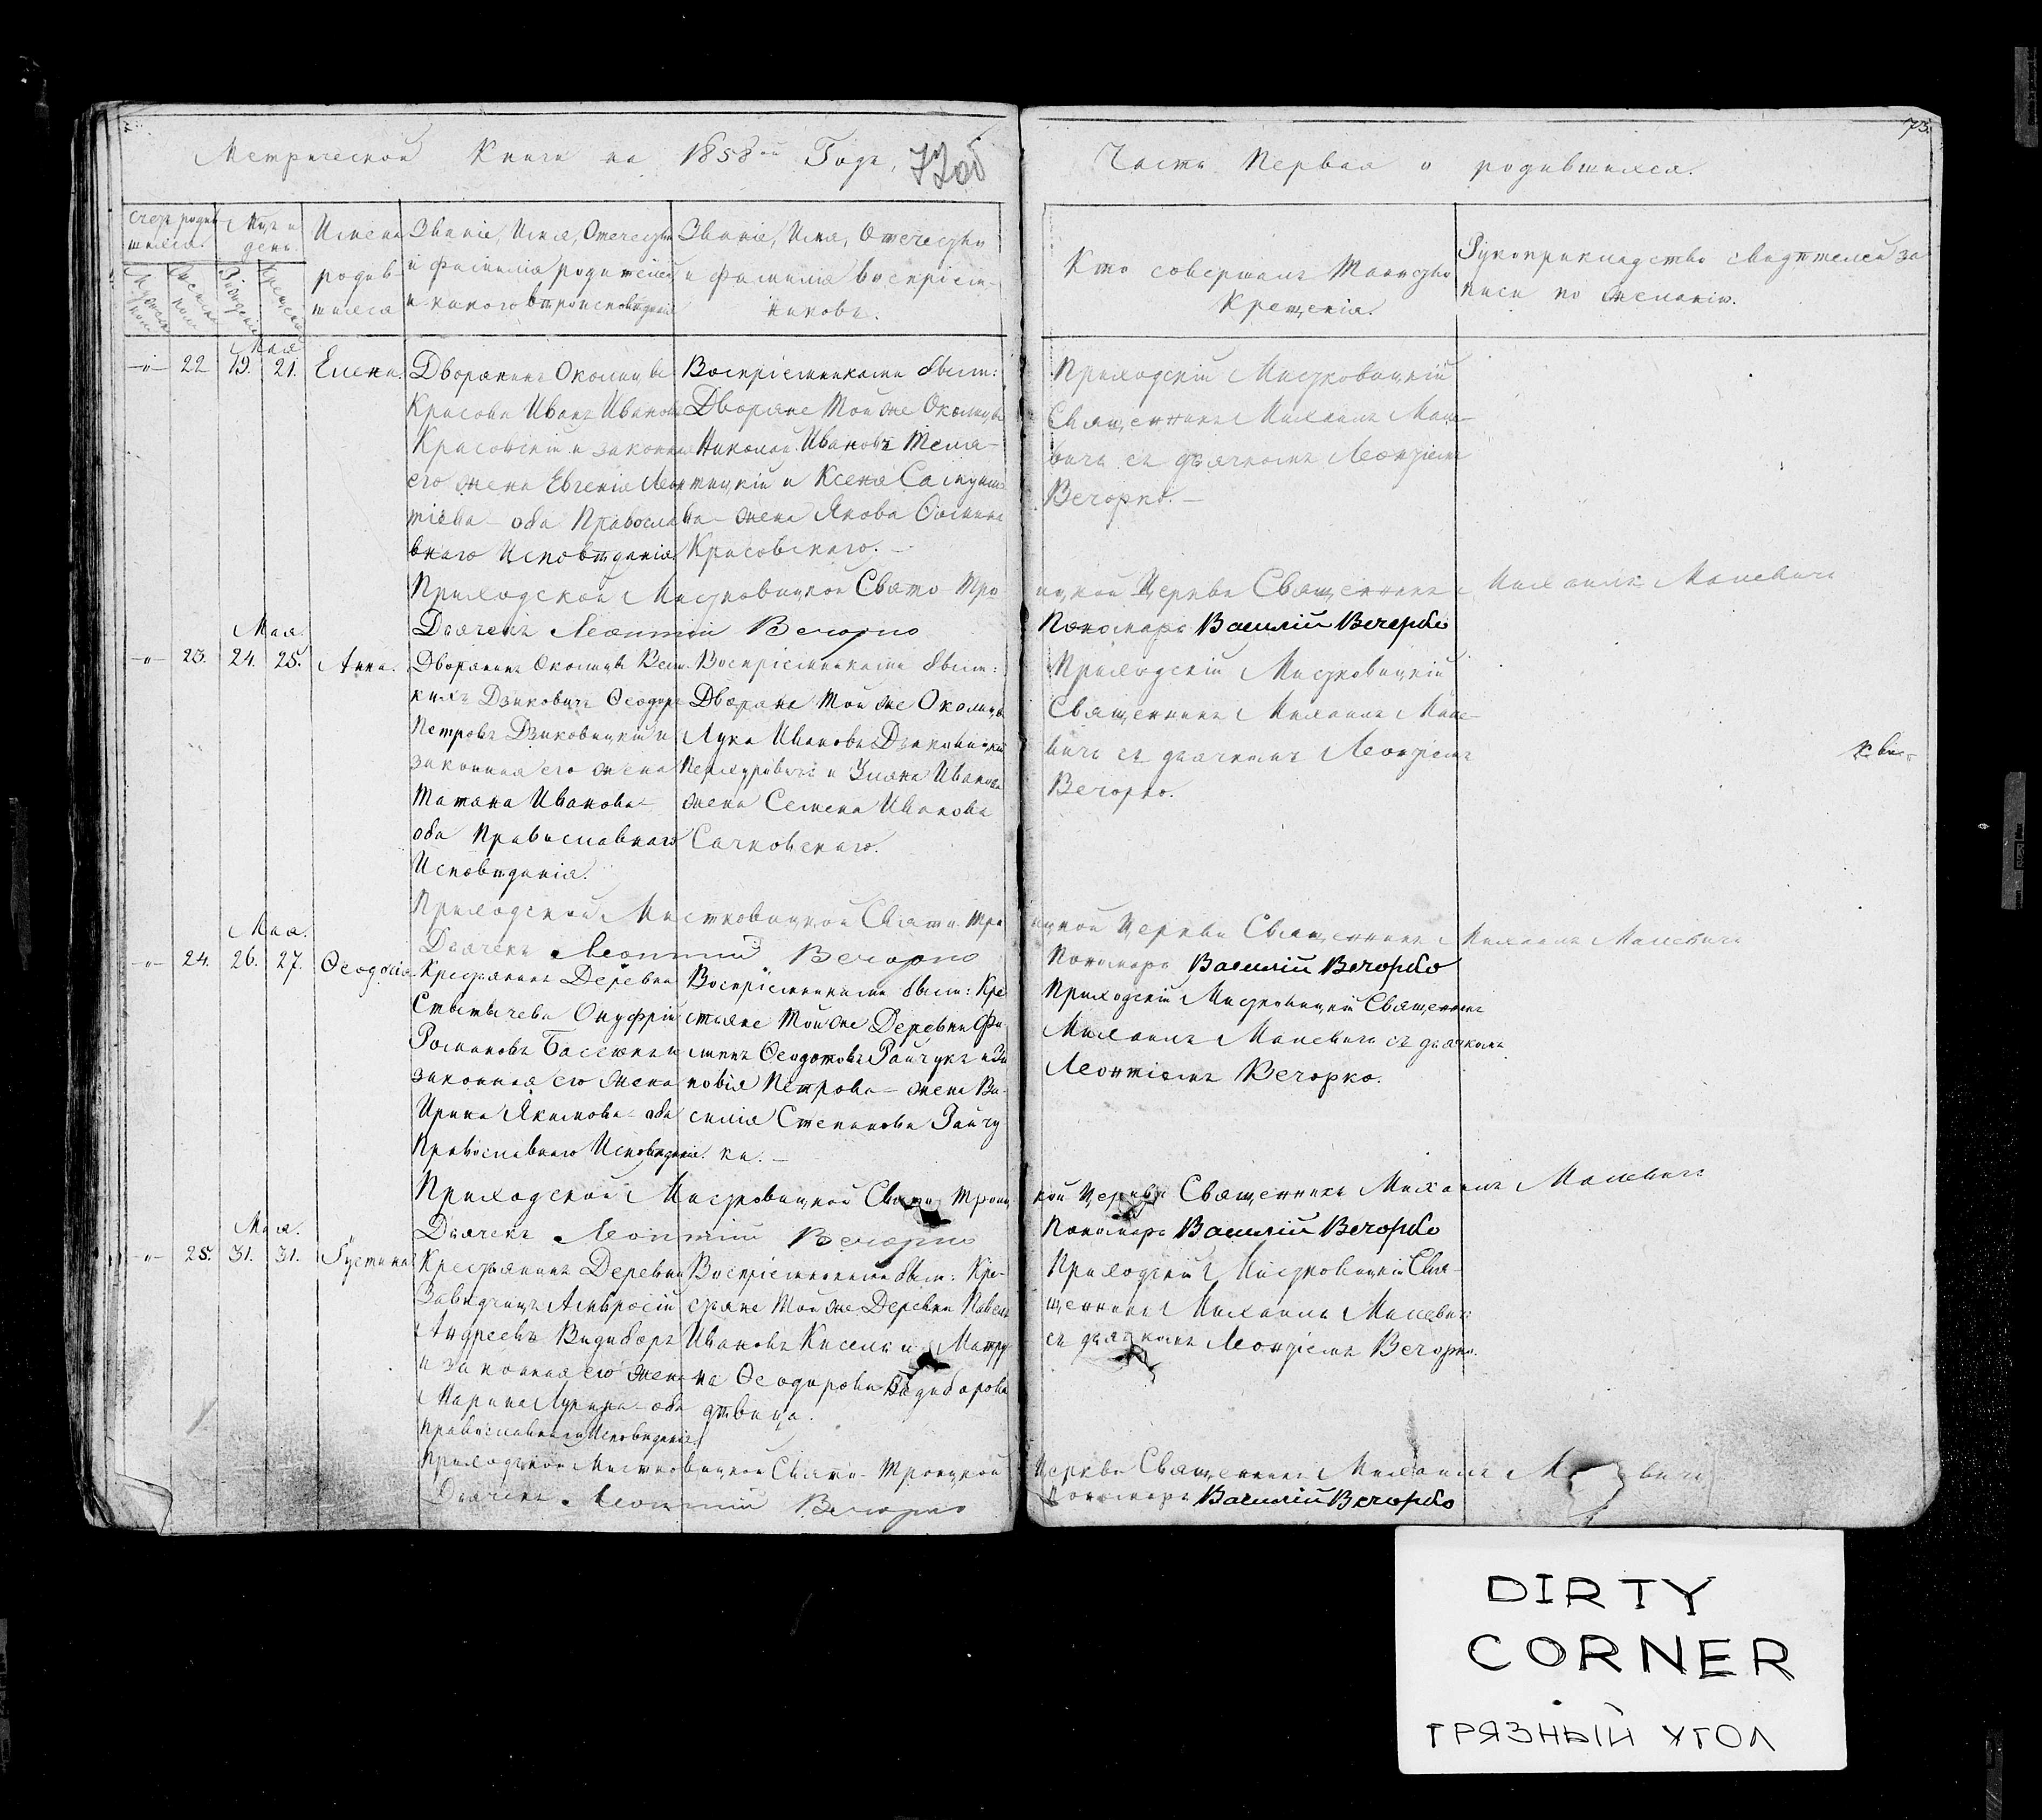 Метрической Книги на 1858й Годъ,
72об
Часть Первая о родившихся.
73.
Счетъ родив
шихся.
Мѣс: и
день.
Имена
родив
шихся
Званіе, Имя, Отечество
и фамилія родителей
и какого вѣроисповѣданія
Званіе, Имя, Отечество
и фамилія воспріем-
никовъ.
Кто совершалъ Таинство
Крещенія.
Рукоприкладство свидѣтелей за
писи по желанію.
Мая
22 19. 21. Елена.
Дворянинъ Околицы
Красова Иванъ Ивановъ
Красовскій и законная
его жена Евгенія Леон
тіева - оба Правосла
внаго Исповѣданія
Воспріемниками были:
Дворяне той же Околицы
Николай Ивановъ Теля-
тицкій и Ксенія
ва - жена Якова
Красовскаго. -
Приходскій Мистковицкій
Священникъ Михаилъ Мале-
вичъ съ дьячкомъ Леонтіемъ
Вечорко. -
Приходской Мистковицкой Свято Тро
ицкой Церкви Священникъ Михаилъ Малевичъ
Дьячекъ Леонтій Вечорко
Пономарь Василій Вечорко
Мая.
23. 24. 25. Анна.
Дворянинъ Околицы Вели
кихъ Дзиковичъ Ѳеодоръ
Петровъ Дзиковицкій и
законная его жена
Татіана Иванова -
оба Православнаго
Исповѣданія.
Воспріемниками были:
Дворяне той же Околицы
Лука Ивановъ Дзиковицкій
и Уліяна Иванова
жена Семена Иванова
Сачковскаго.
Приходскій Мистковицкій
Священникъ Михаилъ Мале-
вичъ съ дьячкомъ Леонтіемъ
Вечорко.
Приходской Мистковицкой Свято Тро
ицкой Церкви Священникъ Михаилъ Малевичъ
Дьячекъ Леонтій Вечорко
Пономарь Василій Вечорко
Мая.
24. 26. 27. Ѳеодосія.
Крестьянинъ Деревни
Стытычева Онуфрій
Романовъ и
законная его жена
Ирина Якимова - оба
Православнаго Исповѣданія.
Воспріемниками были: Кре
стьяне той же Деревни Фи
липъ Ѳеодотовъ Райчукъ и Зи
новія Петрова - жена Ва-
силія Степанова Райчу
ка. -
Приходскій Мистковицкій Священникъ
Михаилъ Малевичъ съ дьячкомъ
Леонтіемъ Вечорко.
Приходской Мистковицкой Свято Троиц
кой Церкви Священникъ Михаилъ Малевичъ
Дьячекъ Леонтій Вечорко
Пономарь Василій Вечорко
Мая.
25. 31. 31. Іустина
Крестьянинъ Деревни
Завидчицъ Амвросій
Андреевъ Видиборъ
и законная его жена
Марина - оба
Православнаго Исповѣданія.
Воспріемниками были: Кре-
стьяне той же Деревни Павелъ
Ивановъ Кисель и Матро
на Ѳеодорова Видиборова
дѣвица.
Приходскій Мистковицкій Свя-
щенникъ Михаилъ Малевичъ
съ дьячкомъ Леонтіемъ Вечорко.
Приходской Мистковицкой Свято-Троицкой
Церкви Священникъ Михаилъ М вичъ
Дьячекъ Леонтій Вечорко
Пономарь Василій Вечорко
DIRTY
CORNER
ГРЯЗНЫЙ УГОЛ